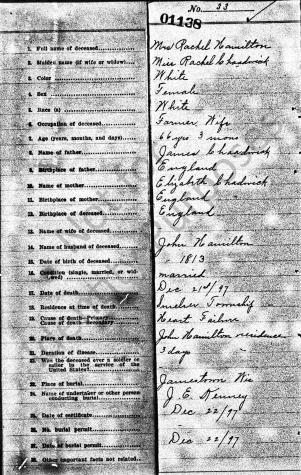 No. 33
01138
1. Full name of deceased Mrs Rachel Hamilton
2. Maiden name (if wife or widow) Miss Rachel Chadwick
3. Color White
4. Sex Female
5. Race (a) White
6. Occupation of deceased Farmer Wife
7. Age (years, months, and days) 66 yrs 3 mons
8. Name of father James Chadwick
9. Birthplace of father England
10. Name of mother Elizabeth Chadwick
11. Birthplace of mother England
12. Birthplace of deceased England
13. Name of wife of deceased
14. Name of husband of deceased John Hamilton
15. Date of birth of deceased 1813
16. Condition (single, married, or widowed) married
17. Date of death Dec 21st/97
18. Residence at time of death Smelser Township
19. Cause of death—Primary Heart Failure
Cause of death—Secondary
20. Place of death John Hamilton residence
21. Duration of disease 3 days
22. Was the deceased ever a soldier or sailor in the service of the United States?
23. Place of burial Jamestown Wis
24. Name of undertaker or other person conducting burial J. E.
25. Date of certificate Dec 22/97
26. No. burial permit
27. Date of burial permit Dec 22/97
28. Other important facts not related